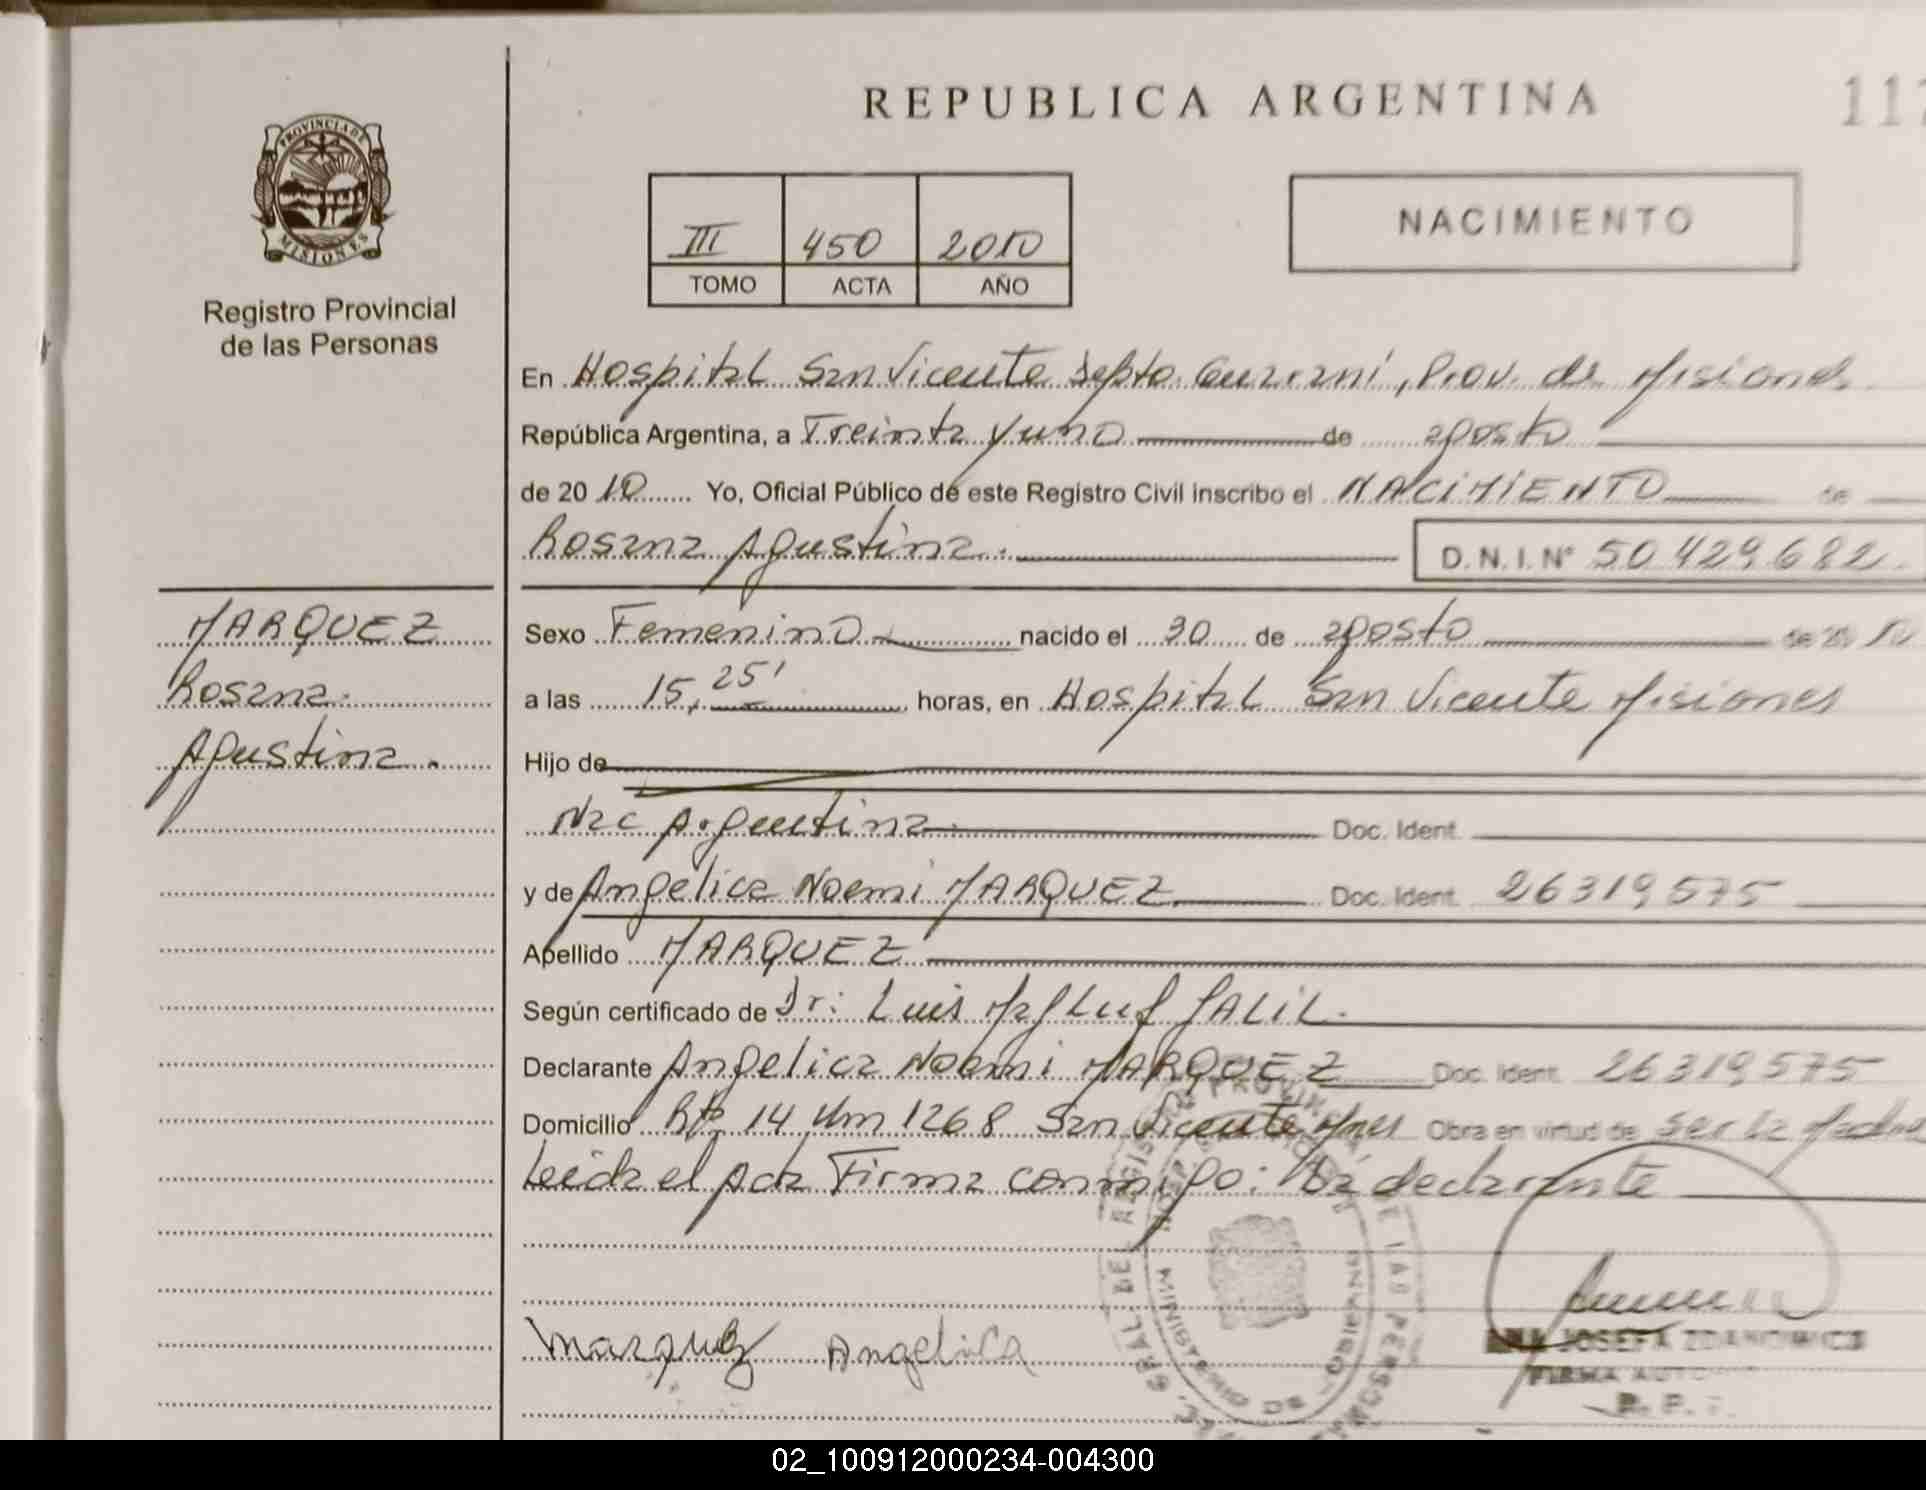 REPUBLICA ARGENTINA
PROVINCIA DE
MISIONES
Registro Provincial
de las Personas
III 450 2010
TOMO ACTA AÑO
NACIMIENTO
En Hospital San Vicente Depto. Guarani, Prov. de Misiones
República Argentina, a Treinta y uno de agosto
de 2010 Yo, Oficial Público de este Registro Civil inscribo el NACIMIENTO de
Rosana Agustina. D.N.I. N° 50429682.
MARQUEZ
Rosana.
Agustina.
Sexo Femenino nacido el 30 de agosto de 2010
a las 15,25' horas, en Hospital San Vicente Misiones
Hijo de
Nac Argentina Doc. Ident.
y de Angelica Noemi MARQUEZ Doc. Ident. 26319575
Apellido MARQUEZ
Según certificado de Dr: Luis JALIL.
Declarante Angelica Noemi MARQUEZ Doc. Ident. 26319575
Domicilio Rta 14 Km 1268 San Vicente Mnes Obra en virtud de ser la Madre
Leida el Acta Firma conmigo: La declarante
Marquez Angelica
ANA JOSEFA ZDANOWICZ
FIRMA
R. P. P.
MINISTERIO DE GOBIERNO
DE LAS PERSONAS
02_100912000234-004300